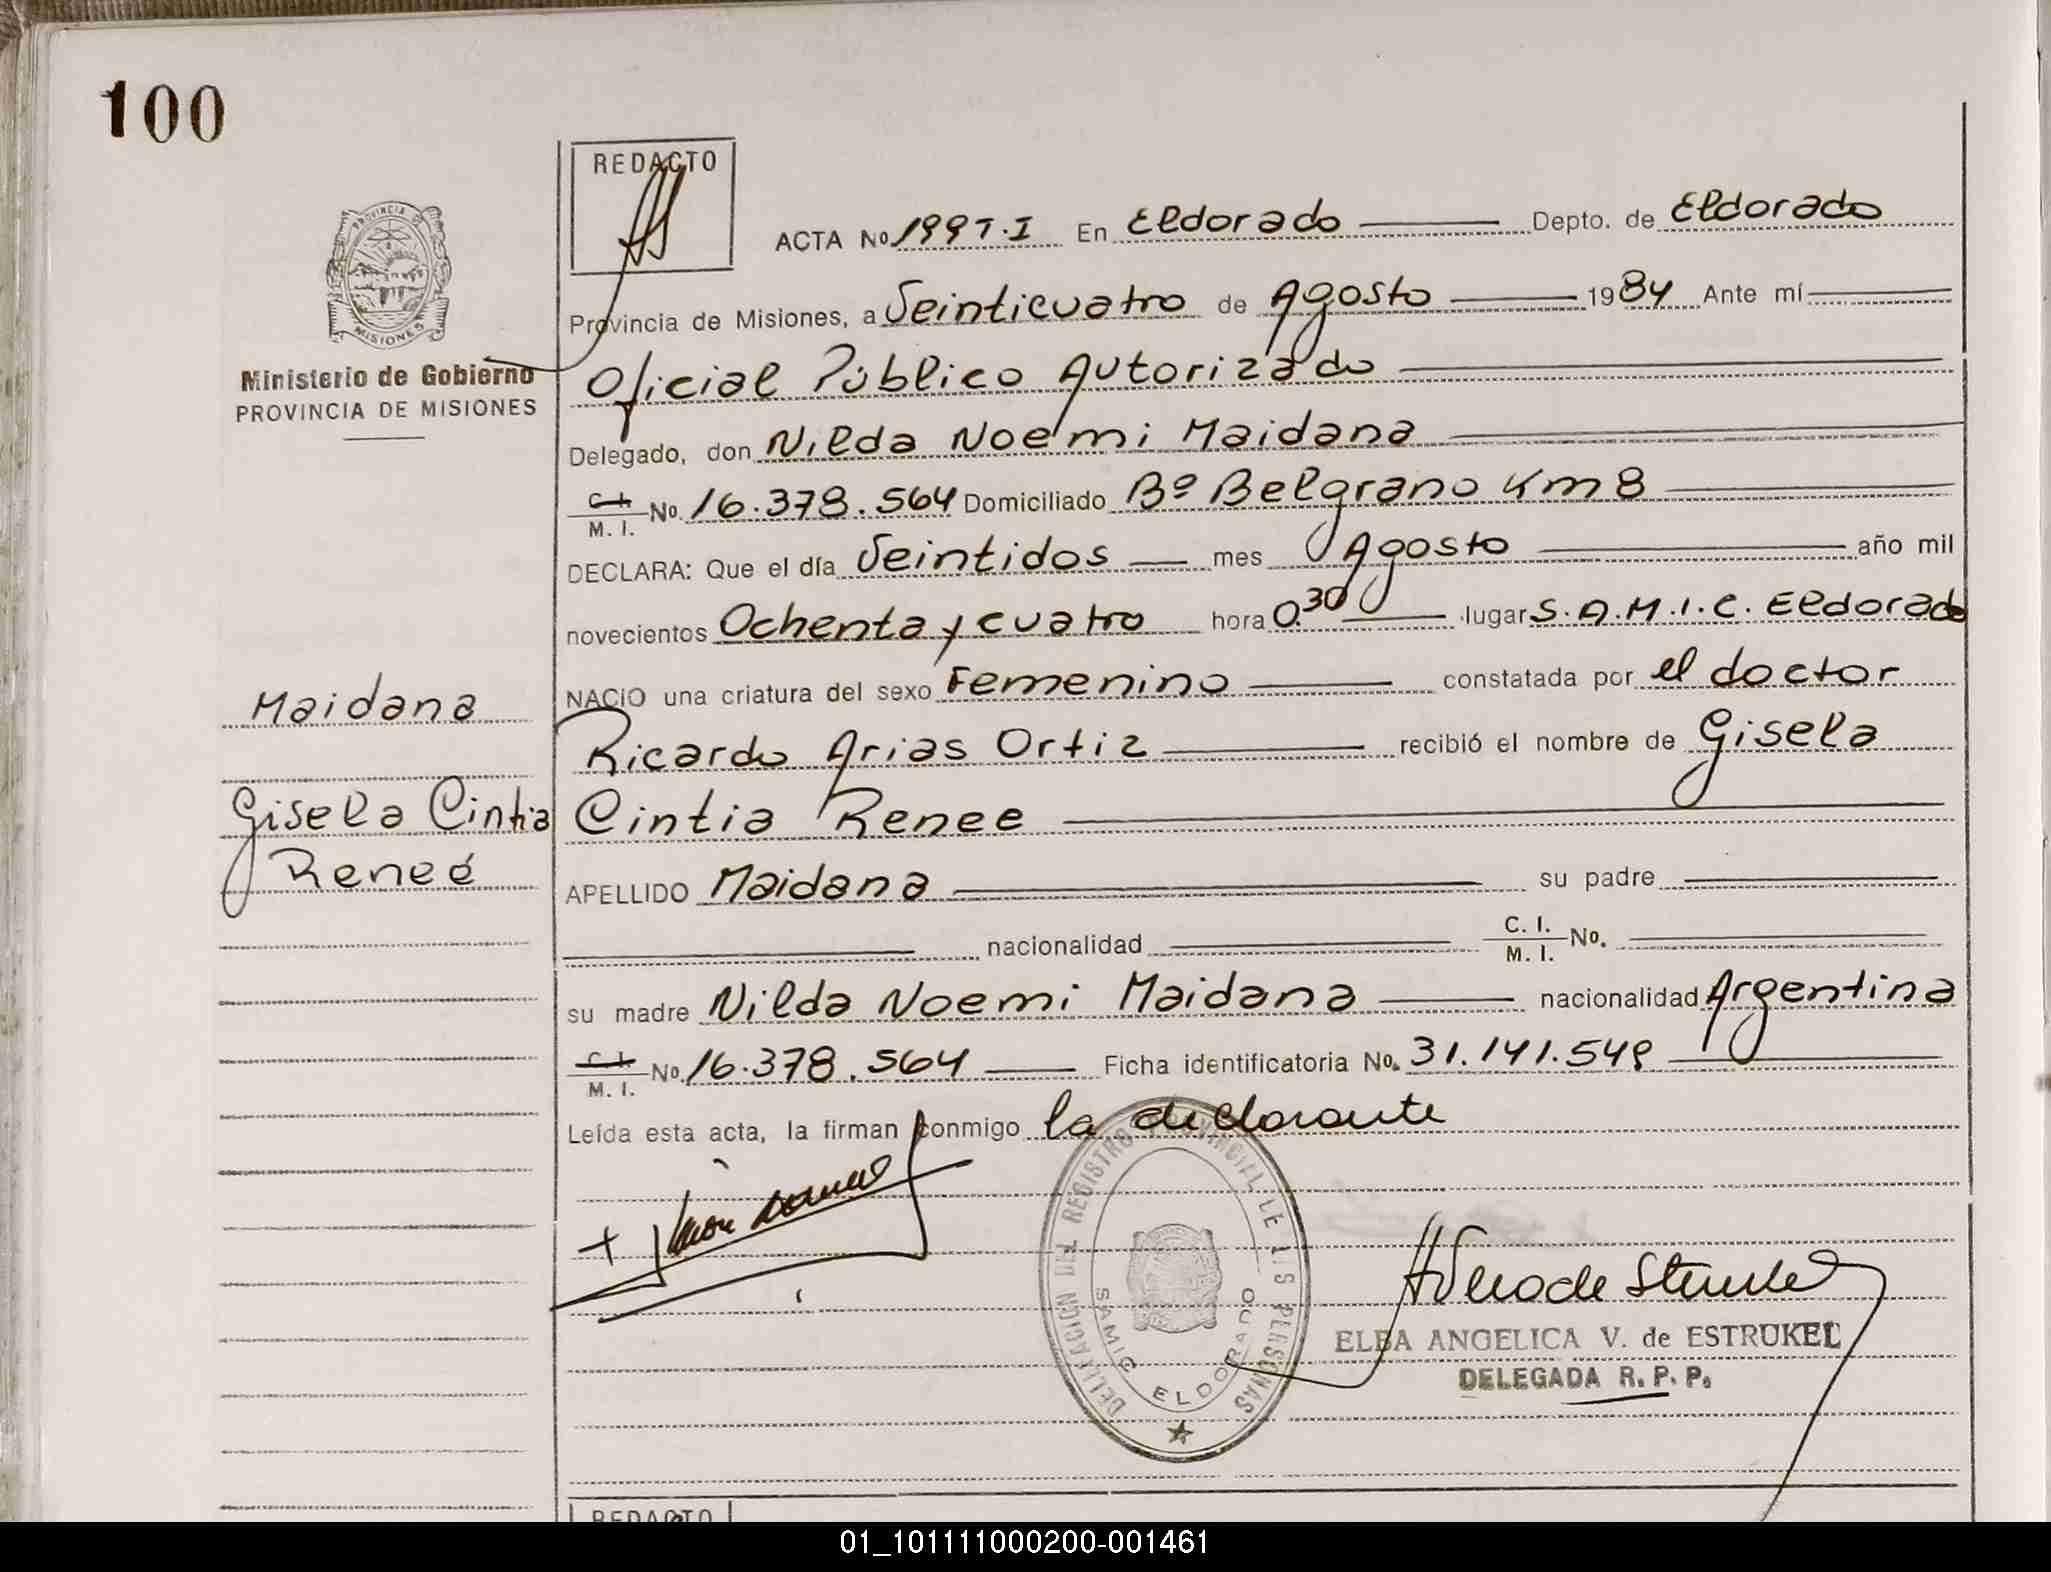 100
REDACTO
ACTA No 199 T.I En Eldorado Depto. de Eldorado
Provincia de Misiones, a Veinticuatro de Agosto 1984 Ante mí
Oficial Público Autorizado
Delegado, don Nilda Noemi Maidana
C. I.
M. I. No. 16.378.564 Domiciliado Bº Belgrano Km 8
DECLARA: Que el día Veintidos mes Agosto año mil
novecientos Ochenta y cuatro hora 0.30 lugar S.A.M.I.C. Eldorado
NACIO una criatura del sexo Femenino constatada por el doctor
Ricardo Arias Ortiz recibió el nombre de Gisela
Cintia Renee
APELLIDO Maidana su padre
nacionalidad C. I.
M. I. No.
su madre Nilda Noemi Maidana nacionalidad Argentina
C. I.
M. I. No. 16.378.564 Ficha identificatoria No. 31.141.549
Leída esta acta, la firman conmigo la declarante
PROVINCIA DE
MISIONES
Ministerio de Gobierno
PROVINCIA DE MISIONES
Maidana
Gisela Cintia
Reneé
DELEGACION DEL REGISTRO PROVINCIAL DE LAS PERSONAS
SAMIC ELDORADO
ELBA ANGELICA V. de ESTRUKEL
DELEGADA R. P. P.
REDACTO
01_101111000200-001461